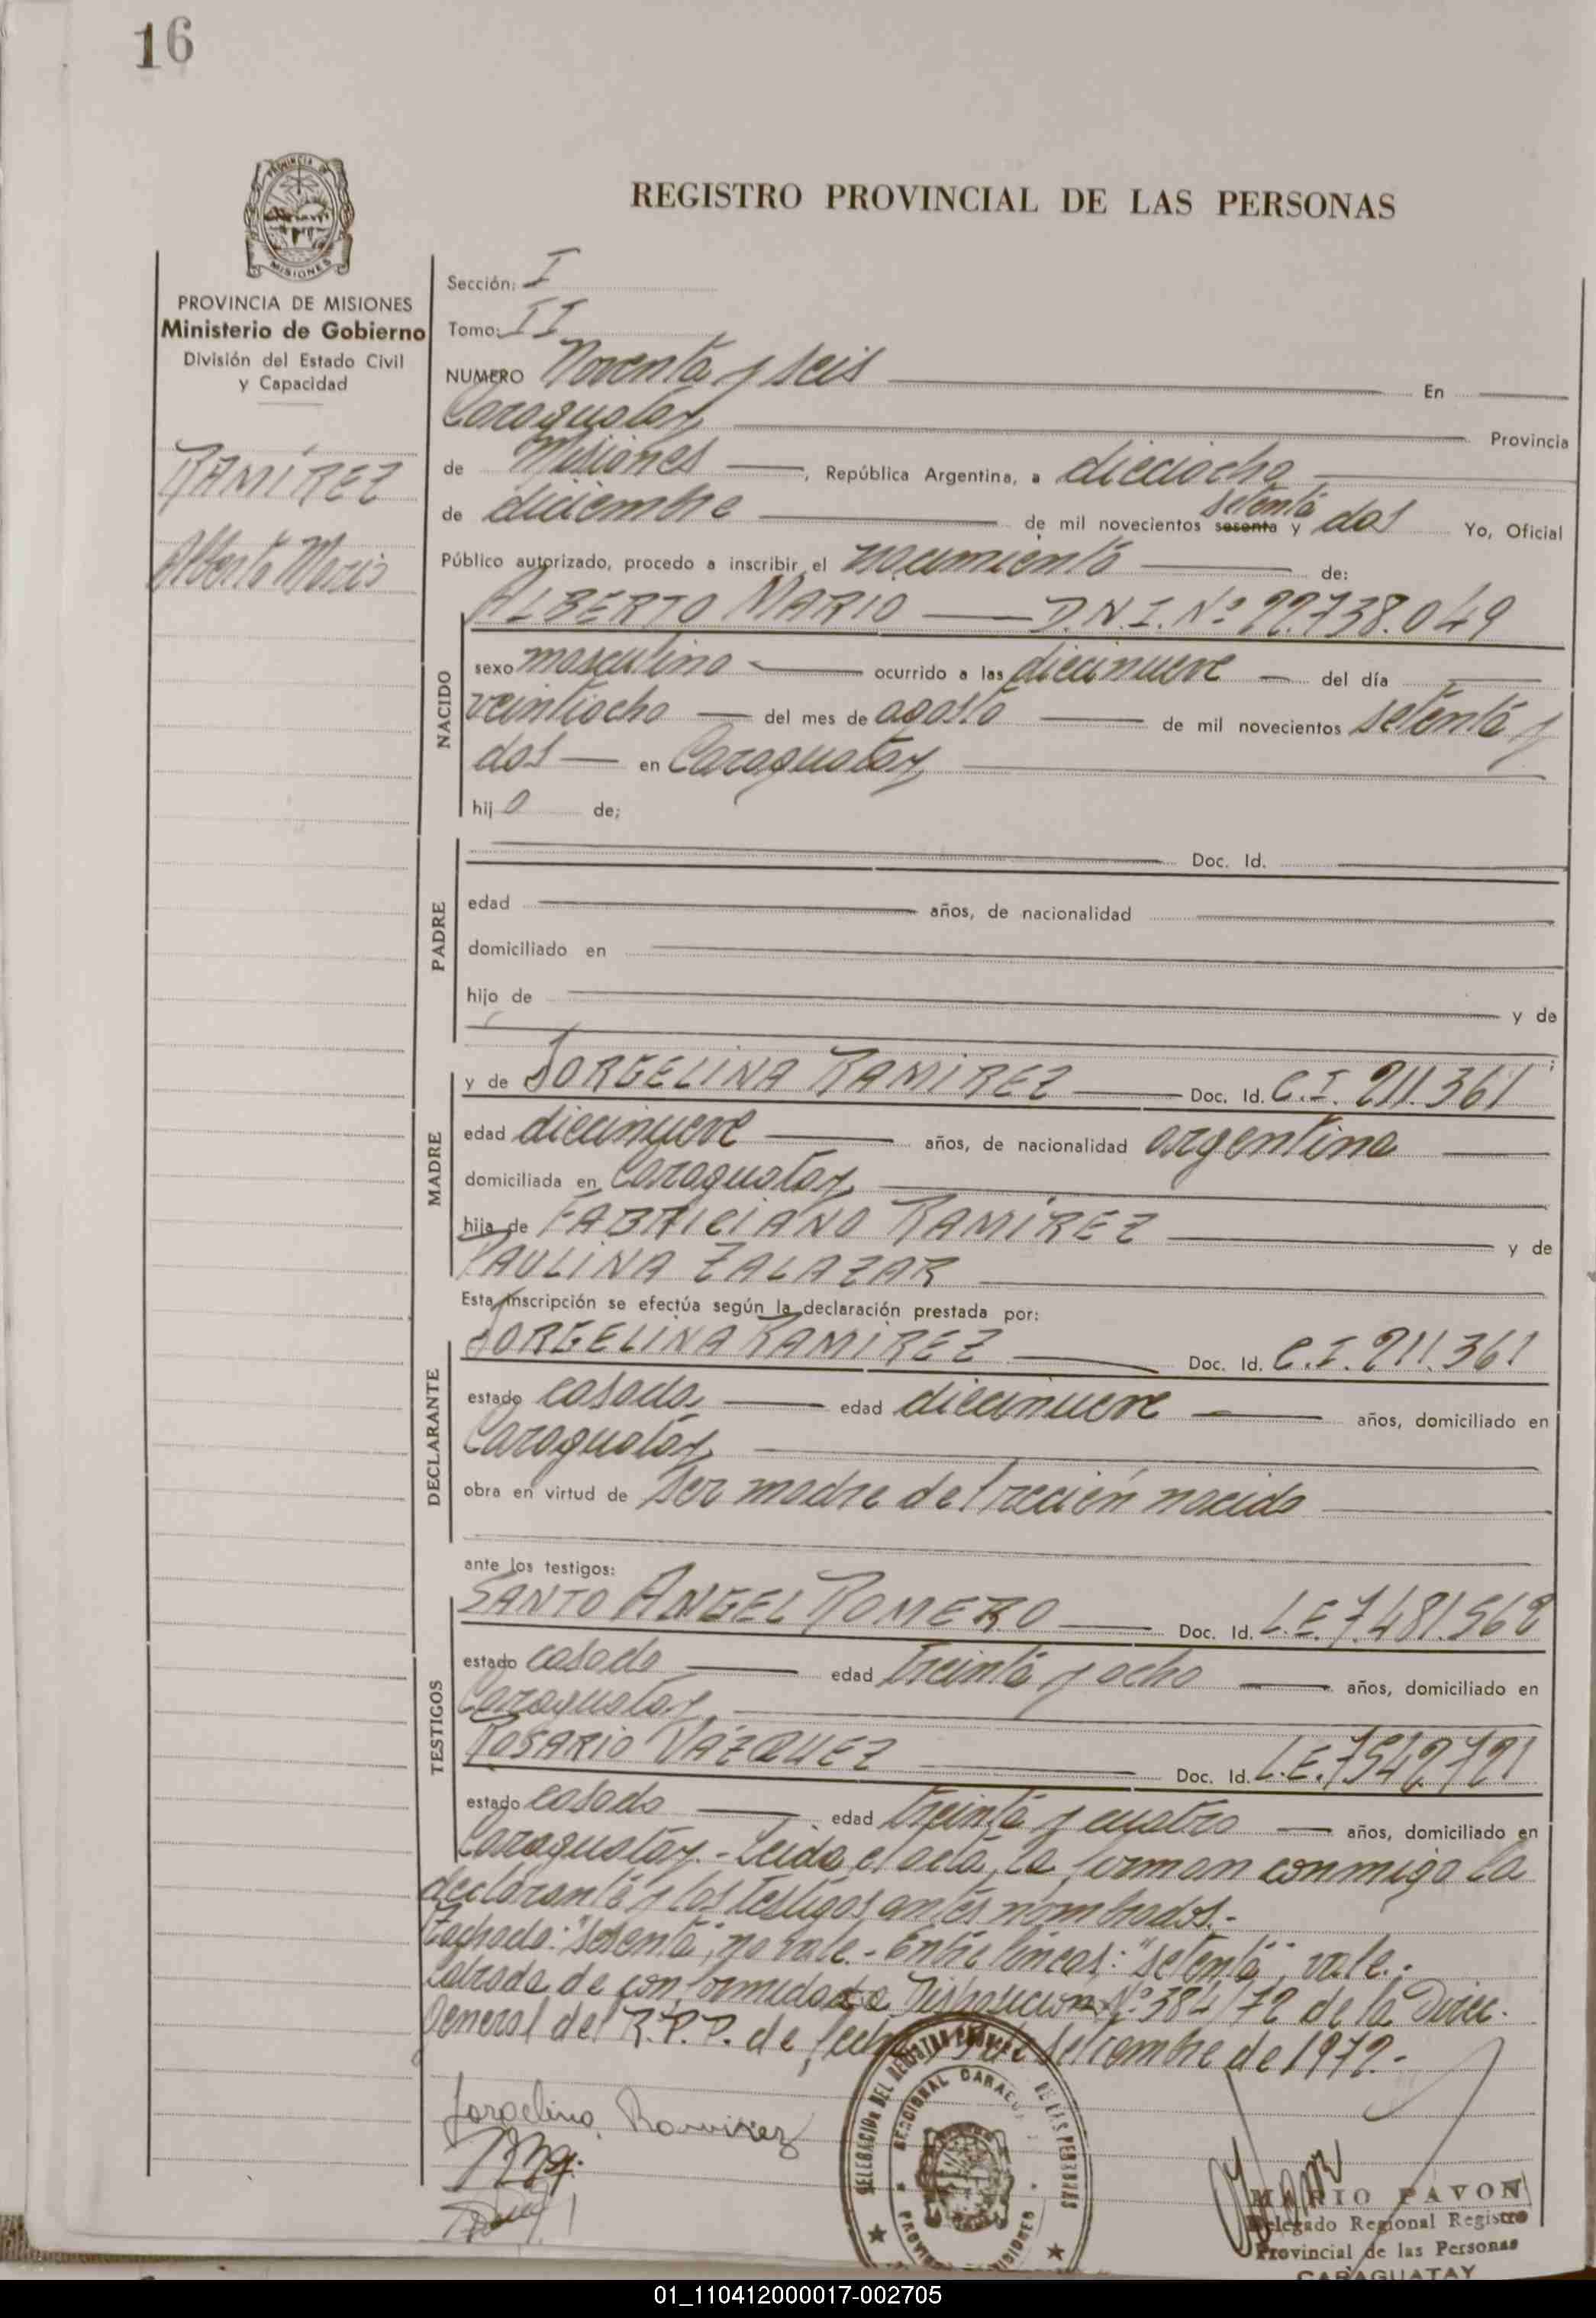 16
REGISTRO PROVINCIAL DE LAS PERSONAS
PROVINCIA DE
MISIONES
PROVINCIA DE MISIONES
Ministerio de Gobierno
División del Estado Civil
y Capacidad
RAMÍREZ
Alberto Mario
Sección: I
Tomo: II
NUMERO Noventa y seis En
Caraguatay Provincia
de Misiones, República Argentina, a dieciocho
setenta
de diciembre de mil novecientos sesenta y dos Yo, Oficial
Público autorizado, procedo a inscribir el nacimiento de:
NACIDO
ALBERTO MARIO D.N.I. Nº 22.738.049
sexo masculino ocurrido a las diecinueve del día
veintiocho del mes de agosto de mil novecientos setenta y
dos en Caraguatay
hijo de;
PADRE
Doc. Id.
edad años, de nacionalidad
domiciliado en
hijo de y de
MADRE
y de JORGELINA RAMIREZ Doc. Id. C.I. 211.361
edad diecinueve años, de nacionalidad argentina
domiciliada en Caraguatay
hija de FABRICIANO RAMÍREZ y de
PAULINA ZALAZAR
Esta inscripción se efectúa según la declaración prestada por:
DECLARANTE
JORGELINA RAMÍREZ Doc. Id. C.I. 211.361
estado casada edad diecinueve años, domiciliado en
Caraguatay
obra en virtud de ser madre del recién nacido
ante los testigos:
TESTIGOS
SANTO ANGEL ROMERO Doc. Id. L.E. 7.481.562
estado casado edad treinta y ocho años, domiciliado en
Caraguatay
ROSARIO VÁZQUEZ Doc. Id. L.E. 7542.721
estado casado edad treinta y cuatro años, domiciliado en
Caraguatay.- Leída el acta, la firman conmigo la
declarante y los testigos antes nombrados.-
Tachado: "sesenta", no vale.- Entre líneas: "setenta", vale.-
Labrada de conformidad a Disposición Nº 384/72 de la Direc.
General del R.P.P. de fecha de setiembre de 1972.-
Jorgelina Ramirez
DELEGACION DEL REGISTRO PROVINCIAL DE LAS PERSONAS
SECCIONAL CARAGUATAY
MISIONES
MARIO PAVON
Delegado Regional Registro
Provincial de las Personas
CARAGUATAY
01_110412000017-002705